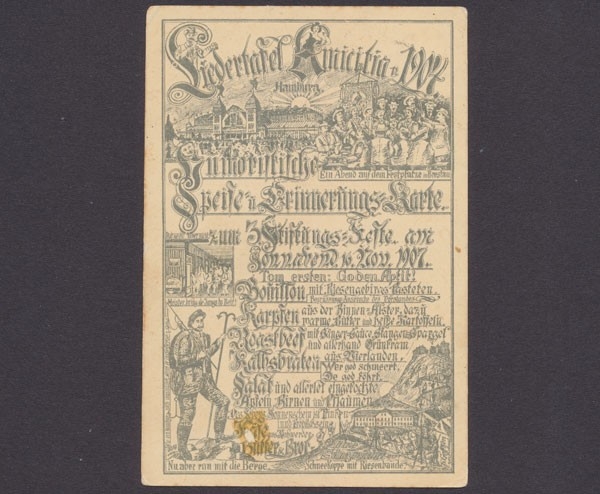 Liedertafel Amicitia v. 1904
Hamburg.
Ein Abend auf dem Festplatze in Breslau
Humoristische
Speise- u. Erinnerungs-Karte
zum 3 Stiftungs-Feste am
Sonnabend 16. Nov. 1907.
Tom ersten: Goden Aptit!
Bouillon mit Riesengebirgs Pasteten.
Karpfen aus der Binnen-Alster, dazu
warme Butter und heisse Kartoffeln.
Roastbeef mit Ginger-Sauce, Stangen-Spargel
und allerhand Grünkram
Kalbsbraten aus Vierlanden.
Wer god schmeert,
De god föhrt.
Salat und allerlei eingekochte
Aepfeln, Birnen und Pflaumen.
Butter u. Brot
Nu aber ran mit die Berge.
Schneekoppe mit Riesenbaude